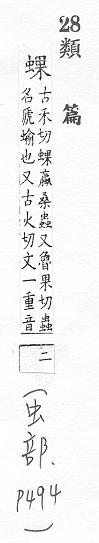 28類
篇
蜾古禾切蜾蠃桑蟲又魯果切蟲
名虒蝓也又古火切文一重音
二
(虫部.
P494)